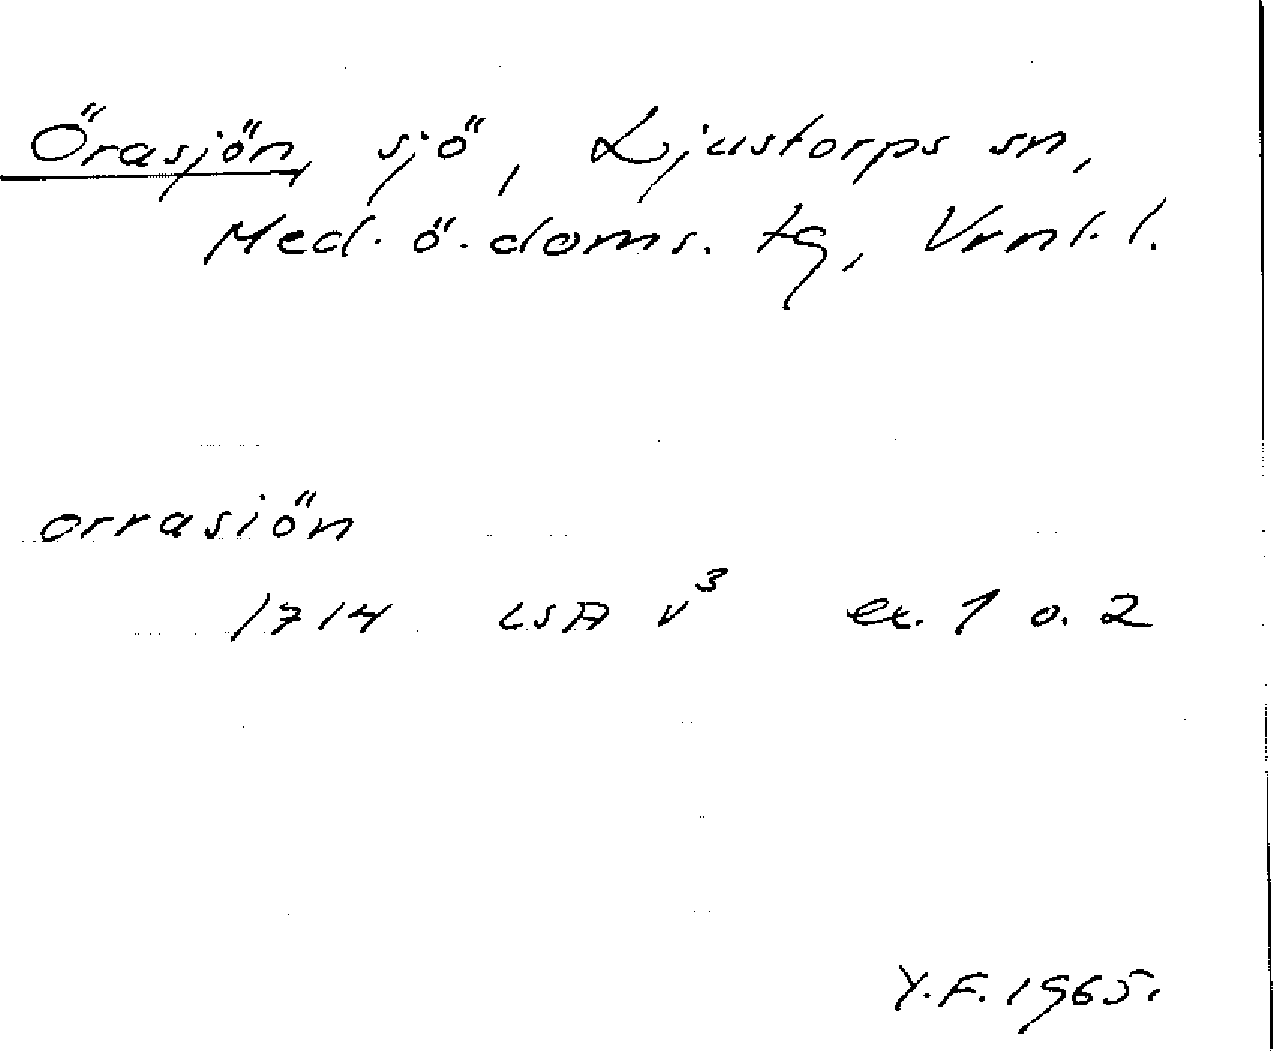 Örasjön, sjö, Ljustorps sn,
Med. ö. doms. tg, Vrnl. l.
orrasiön
1714 LSA V³ ex. 1 o. 2
Y.F. 1965.